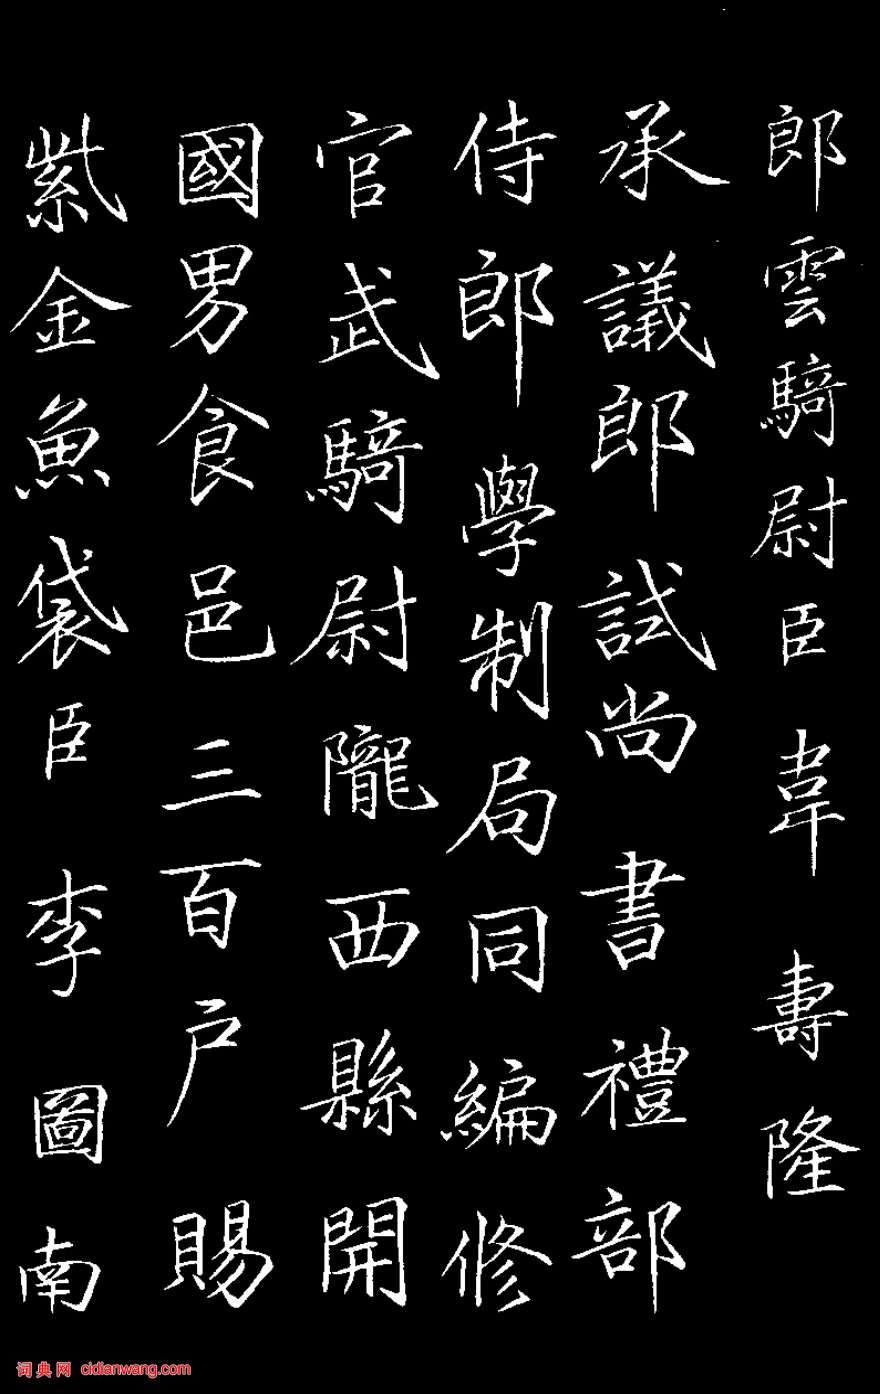 郎雲騎尉臣韋壽隆
承議郎試尚書禮部
侍郎學制局同編修
官武騎尉隴西縣開
國男食邑三百户賜
紫金魚袋臣李圖南
词典网 cidianwang.com